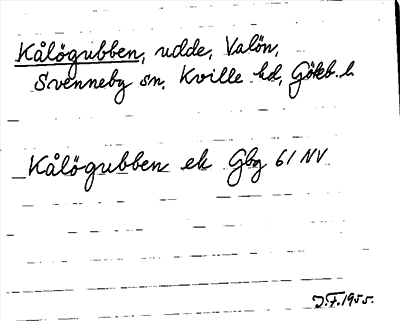 Kålögubben, udde, Valön,
Svenneby sn, Kville hd, Göteb. l.
Kålögubben ek Gbg 61 NV
J.F. 1955.